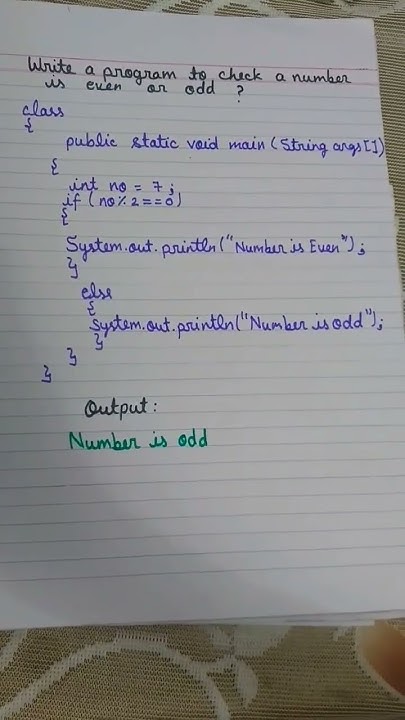 Write a program to check a number
is even or odd ?
class
{
public static void main (String args[])
{
int no = 7;
if (no%2==0)
{
System.out.println("Number is Even");
}
else
{
System.out.println("Number is odd");
}
}
}
Output:
Number is odd